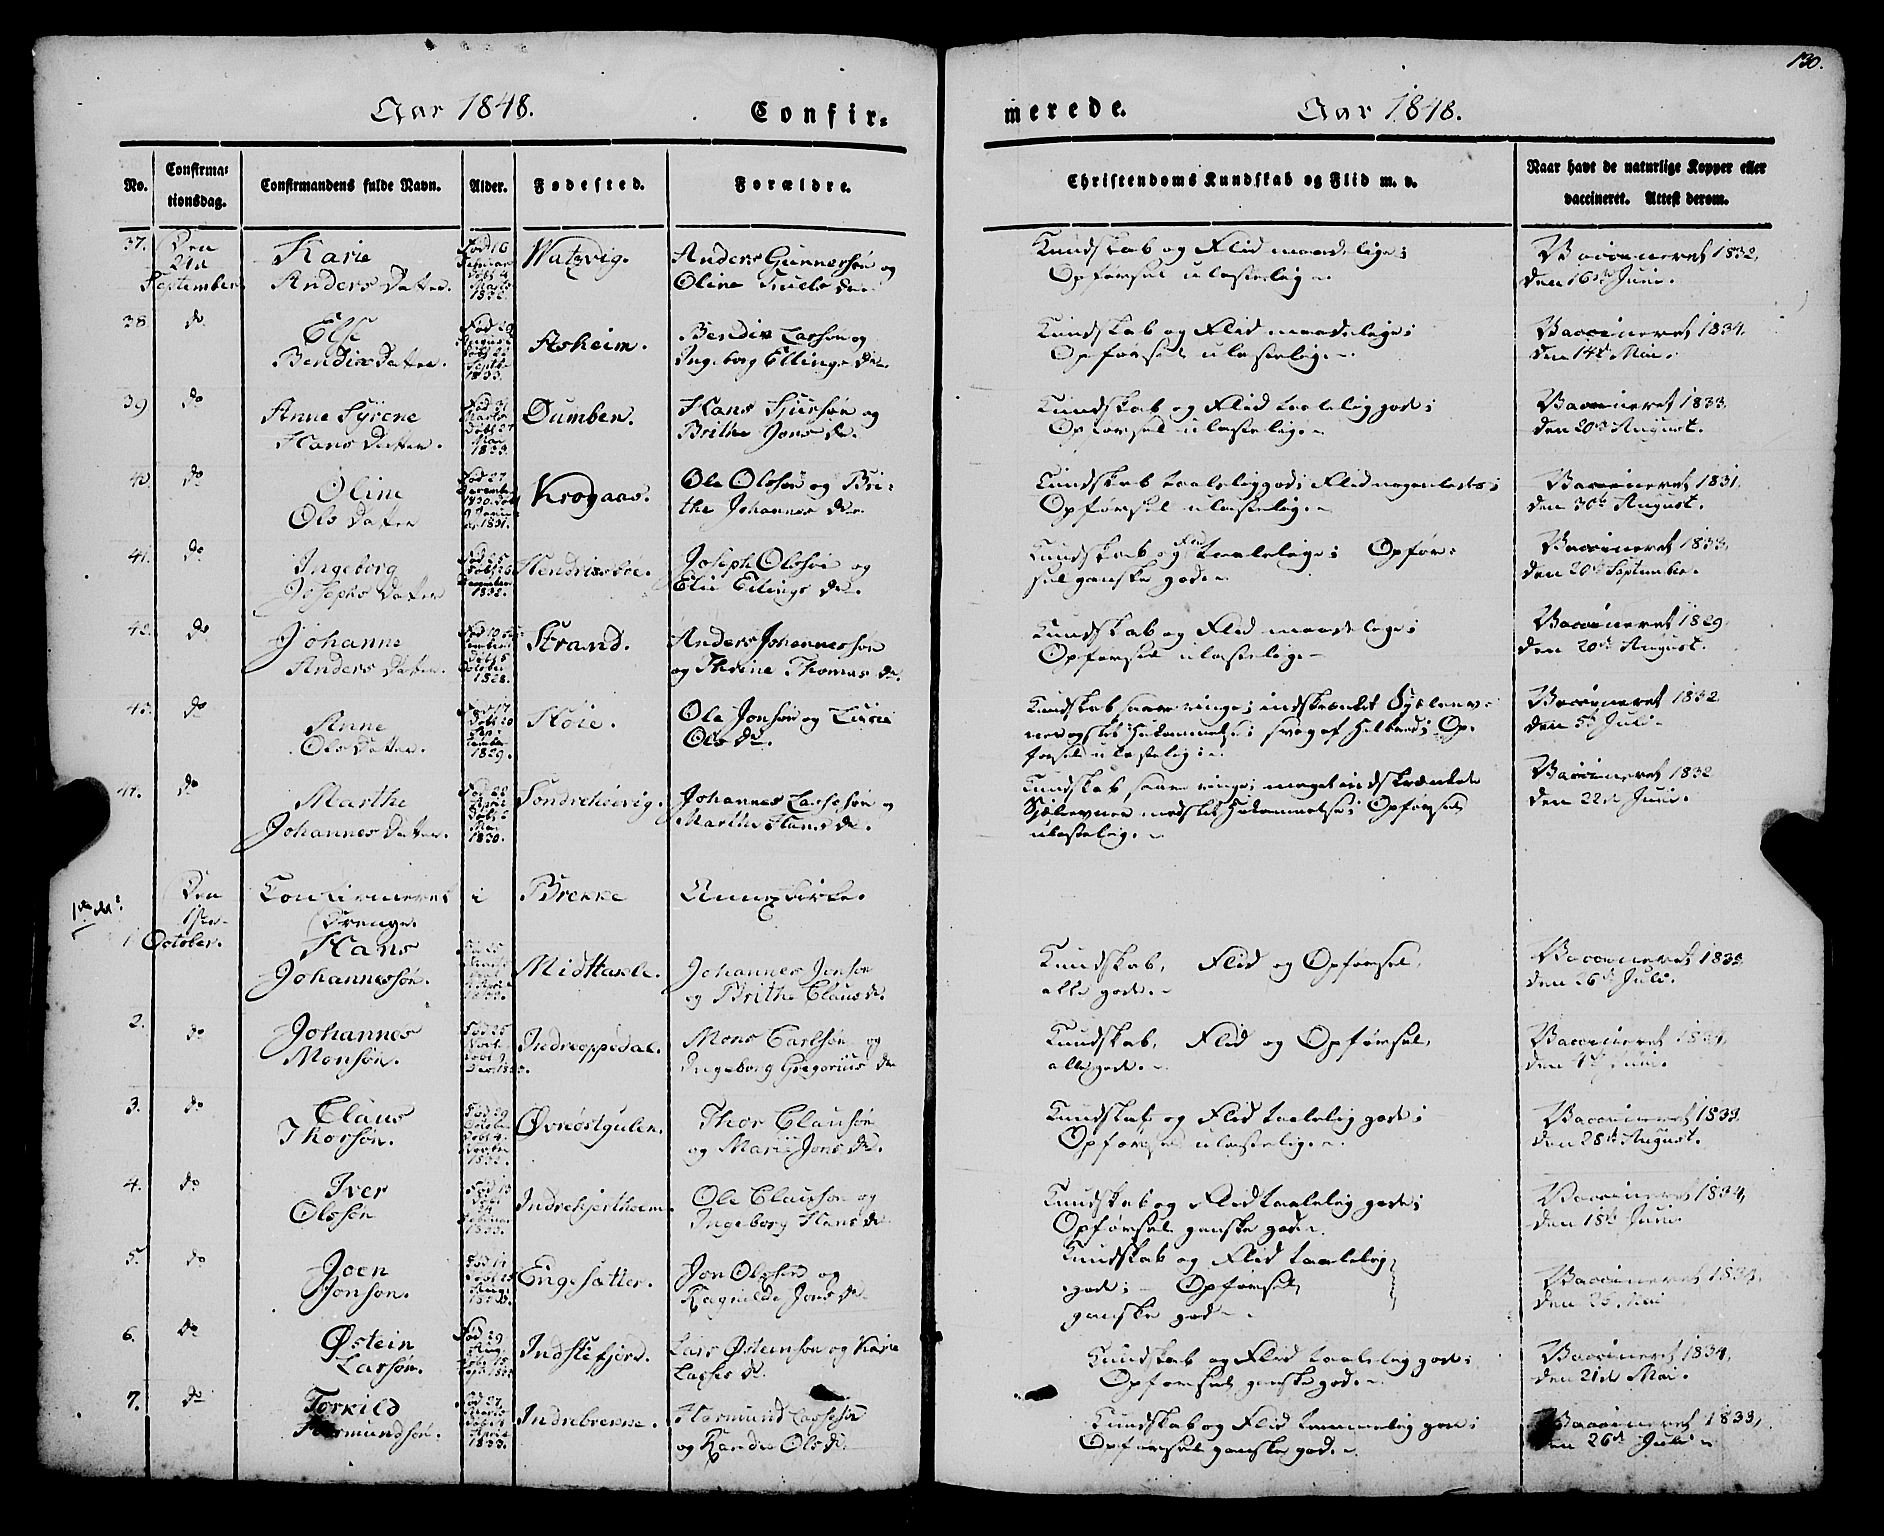 130.
Aar 1848. Confir- merede. Aar 1848.
No. Confirma- tionsdag. Confirmandens fulde Navn. Alder. Fødested. Forældre. Christendoms Kundskab og Flid m. v. Naar havt de naturlige Kopper eller vaccineret. Attest derom.
37. Den 24de September Karie Anders Datter. Fød 16 Februar Døbt 4 Marts 1832. Watzvig. Anders Gunnersøn og Oline Truels Dr. Kundskab og Flid maadelige; Opførsel ulastelig. Vaccineret 1832, den 16de Juni.
38 do Else Bendix Datter. 1833. Asheim. Bendix Larssøn og Ingeborg Ellings Dr. Kundskab og Flid maadelige; Opførsel ulastelig. Vaccineret 1834. den 14de Mai.
39 do Anne Syrene Hans Datter. 1833. Dumben. Hans Sjursøn og Brithe Jons Dr. Kundskab og Flid taalelig gode; Opførsel ulastelig. Vaccineret 1833, den 20de August.
40. do Oline Ols Datter Fød 27 December 1830. Døbt 1831. Krogaas. Ole Olssøn og Brithe Johannes Dr. Kundskab taalelig god; Flid nogenledes; Opførsel ulastelig. Vaccineret 1831. den 30te August.
41. do Ingeborg Josephs Datter December 1832. Hendrixbøe. Joseph Olssøn og Elie Ellings Dr. Kundskab og Flid taalelige; Opførsel ganske god. Vaccineret 1833, den 20de September.
42. do Johanne Anders Datter. October 1828. Strand. Anders Johannessøn og Therine Thomas Dr. Kundskab og Flid maadelige; Opførsel ulastelig. Vaccineret 1829, den 20de August.
43. do Anne Ols Datter. Fød 17 Døbt 20 September 1829. Høie. Ole Jonsøn og Lisie Ols Dr. Kundskab saare ringe; indskrænket Sjelevne og slet Hukommelse; svag af Helbred; Opførsel ulastelig. Vaccineret 1832 den 5te Juli.
44. do Marthe Johannes Datter. Fød 22 April Døbt Mai 1830. Søndrehövig. Johannes Lassesøn og Marthe Hans Dr. Kundskab saare ringe; meget indskrænkede Sjelevner med slet Hukommelse; Opførsel ulastelig. Vaccineret 1832 den 22de Juni.
Den 1ste October. Confirmeret i Brekke Annexkirke. Drenge.
1 Hans Johannessøn. Midttasle. Johannes Jensøn og Brithe Claus Dr. Kundskab, Flid og Opførsel, alle gode. Vaccineret 1833 den 26de Juli.
2. do Johannes Monsøn. Indreoppedal. Mons Carlsøn og Ingeborg Gregorius Dr Kundskab, Flid og Opførsel, alle gode. Vaccineret 1834, den 4de Juni.
3. do Claus Thorsøn. 1832. Øvreöstgulen. Thor Claussøn og Marie Jons Dr. Kundskab og Flid taalelig gode; Opførsel ulastelig. Vaccineret 1833 den 28de August.
4. do Iver Olssøn Fød 13 Døbt 24 Februar 1833. Indrehjertholm. Ole Claussøn og Ingeborg Hans Dr Kundskab og Flid taalelig gode; Opførsel ganske god. Vaccineret 1834, den 18de Juni.
5. do Joen Jonsøn. Engesætter. Jon Olssøn og Ragnilde Jons Dr Kundskab og Flid taalelig gode; Opførsel ganske god. Vaccineret 1834, den 26. Mai
6. do Østein Larsøn. Fød 29 Aug. Indstefjord. Lars Østeinsøn og Karie Lasses Dr. Kundskab og Flid taalelig gode; Opførsel ganske god. Vaccineret 1834, den 21de Mai.
7. do Torkild Hermundsøn. Fød 27 Marts Døbt April 1833. Indrebrekke. Hermund Lassesøn og Randie Ols Dr. Kundskab og Flid temmelig gode; Opførsel ganske god. Vaccineret 1833, den 26de Juli